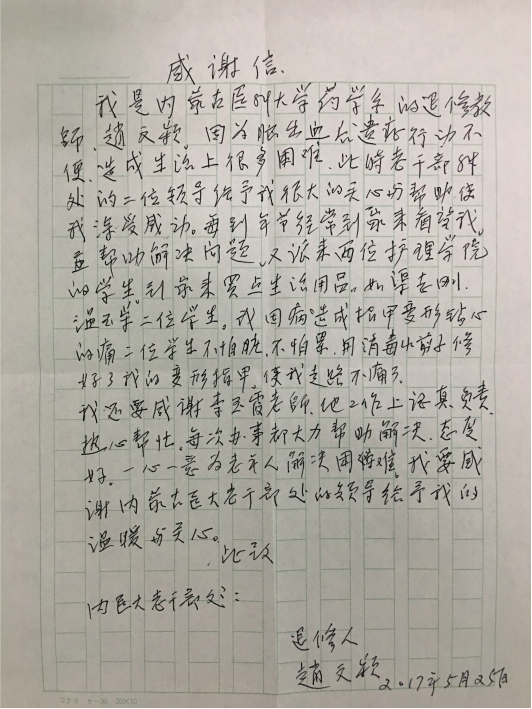 感谢信.
我是内蒙古医科大学药学系的退修教
师.趙文颖.因为脑出血后遗症行动不
便.造成生活上很多困难.此时老干部
处的二位领导给予我很大的关心和帮助使
我深受感动。每到年节经常到家来看望我。
并帮助解决问题.又派来两位护理学院
的学生.到家来买点生活用品.如渠志刚.
温玉学二位学生。我因病造成指甲变形钻心
的痛二位学生不怕脏.不怕累.用消毒小剪子修
好了我的变形指甲.使我走路不痛了.
我还要感谢李玉霞老师.他工作上认真.负责.
热心帮忙.每次办事都大力帮助解决.态度
好.一心一意为老年人解决困难.我要感
谢内蒙古医大老干部处的领导给予我的
温暖和关心。
此致
内医大老干部处:
退修人
趙文颖 2.017年5月25日